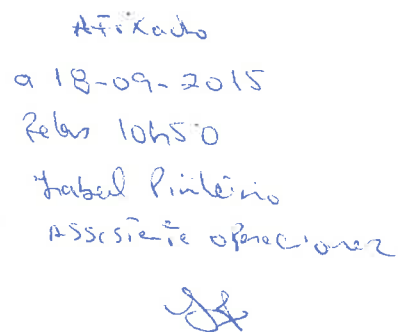 Afixado
a 18-09-2015
Pelas 10h50
Isabel Pinheiro
Assistente operacional